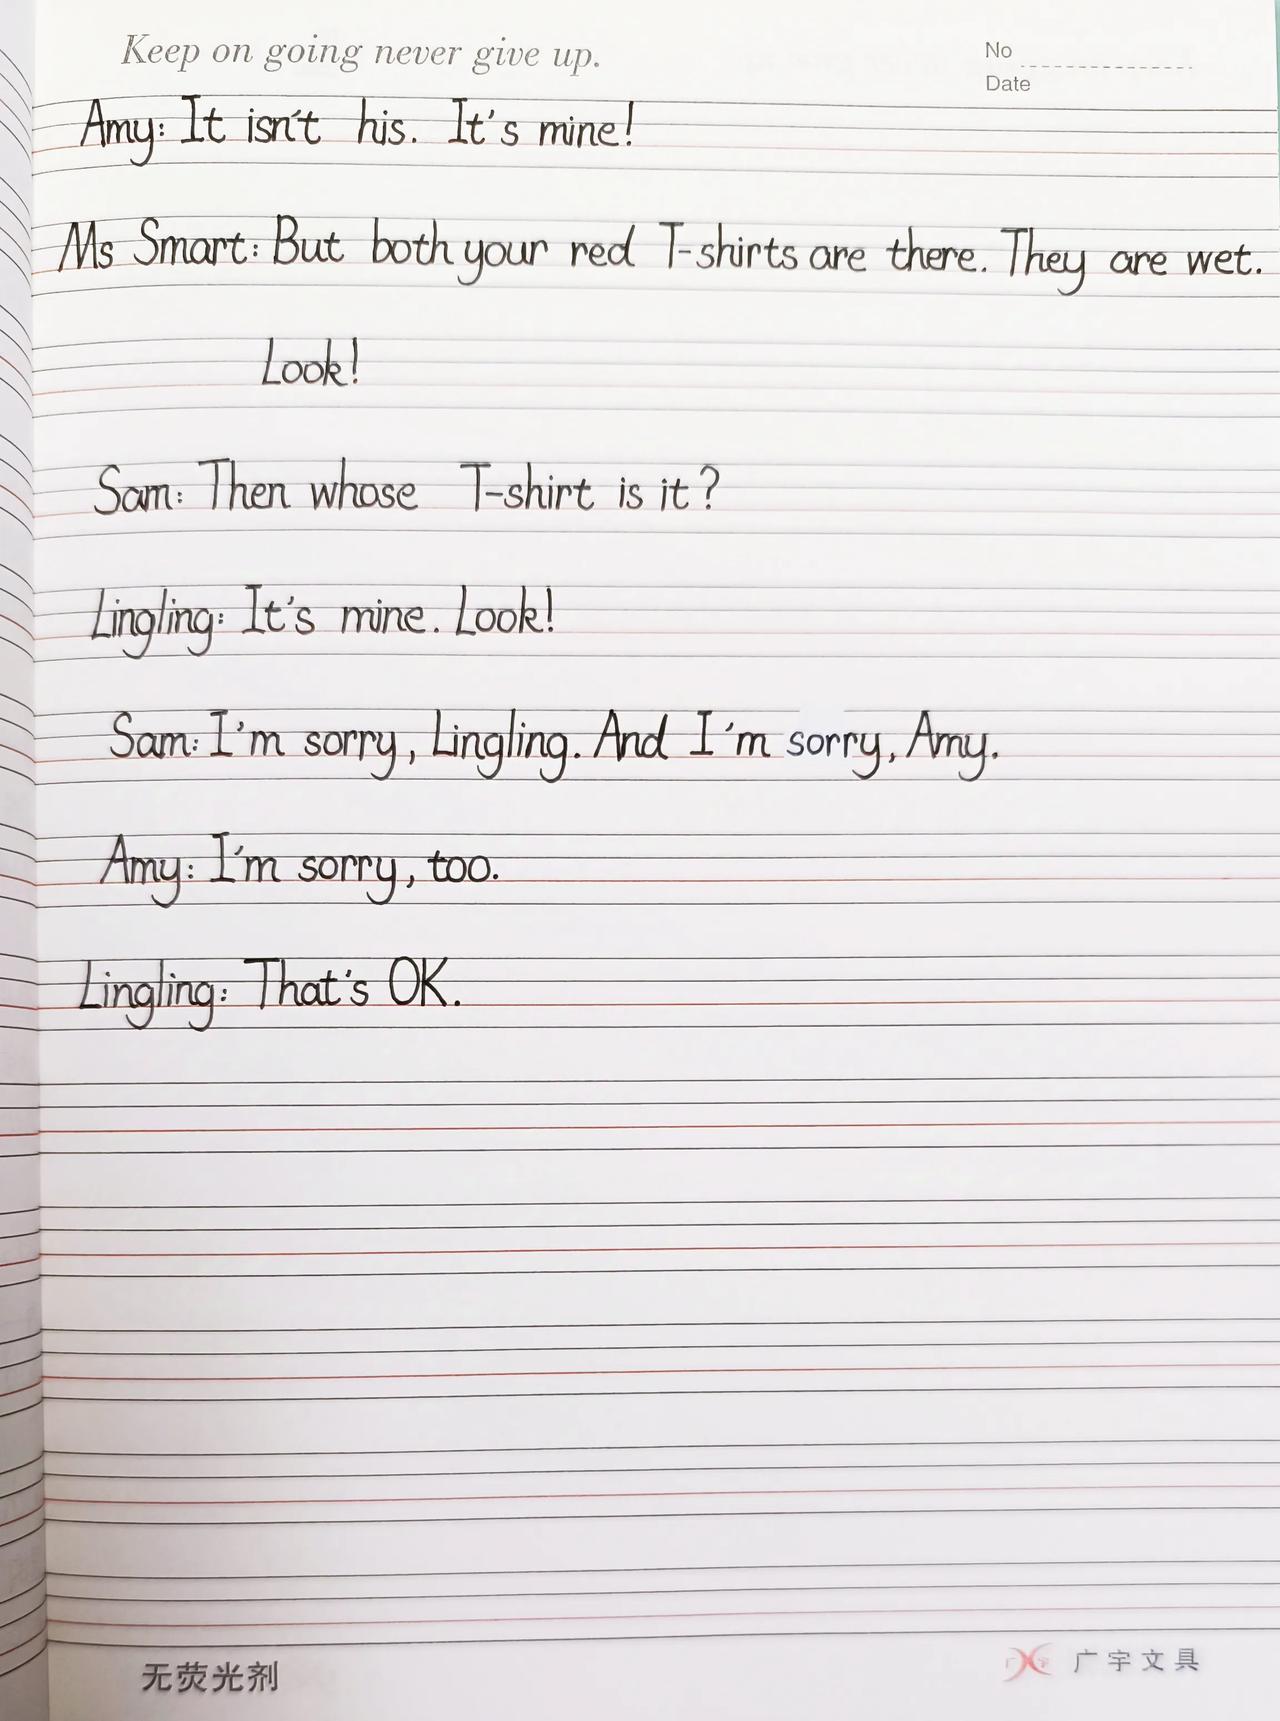 Keep on going never give up.
No
Date
Amy: It isn't his. It's mine!
Ms Smart: But both your red T-shirts are there. They are wet.
Look!
Sam: Then whose T-shirt is it?
Lingling: It's mine. Look!
Sam: I'm sorry, Lingling. And I'm sorry, Amy.
Amy: I'm sorry, too.
Lingling: That's OK.
无荧光剂
广宇文具